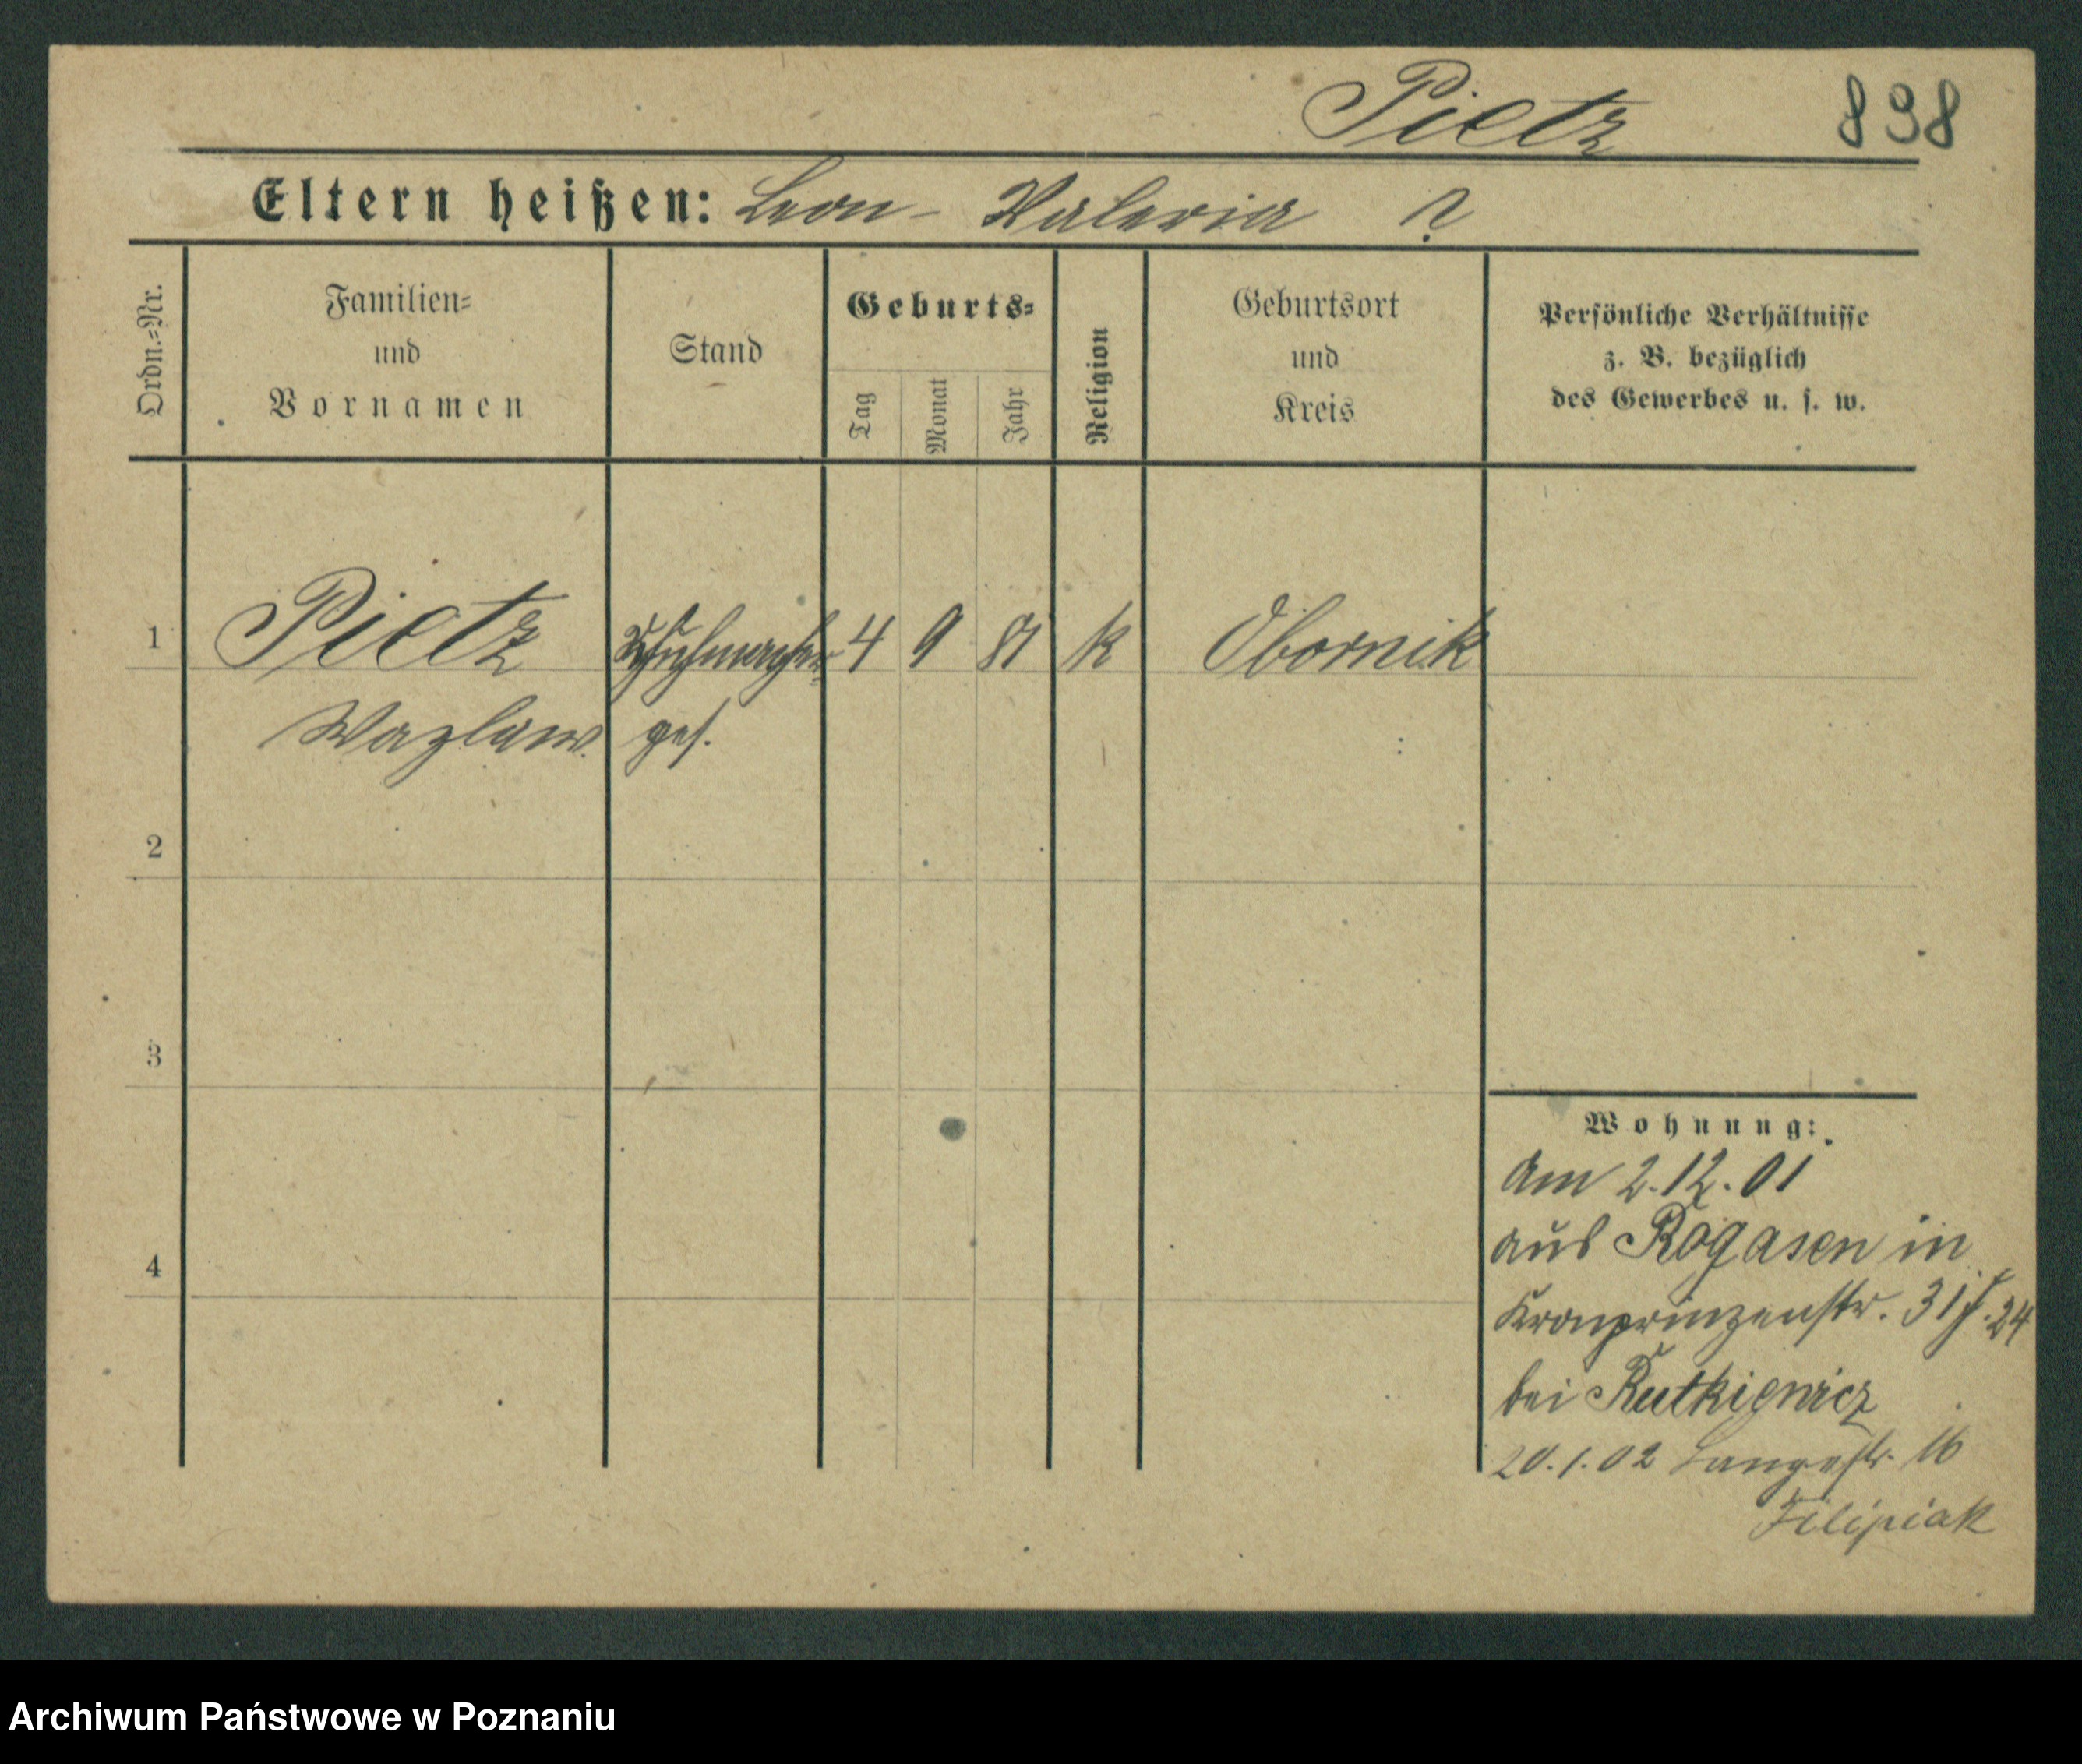 Pietz 898
Eltern heißen: Leon - Valeria ?
Ordn.=Nr.
Familien=
und
Vornamen
Stand
Geburts=
Tag
Monat
Jahr
Religion
Geburtsort
und
Kreis
Persönliche Verhältnisse
z. B. bezüglich
des Gewerbes u. s. w.
1 Pietz Schuhmacher 4 9 81 k Obornik
Wazlaw. ges.
2
3
4
Wohnung:
Am 2.12.01
aus Rogasen in
Kronprinzenstr. 31 24
bei Rutkiewicz
20.1.02 Langestr. 16
Filipiak
Archiwum Państwowe w Poznaniu